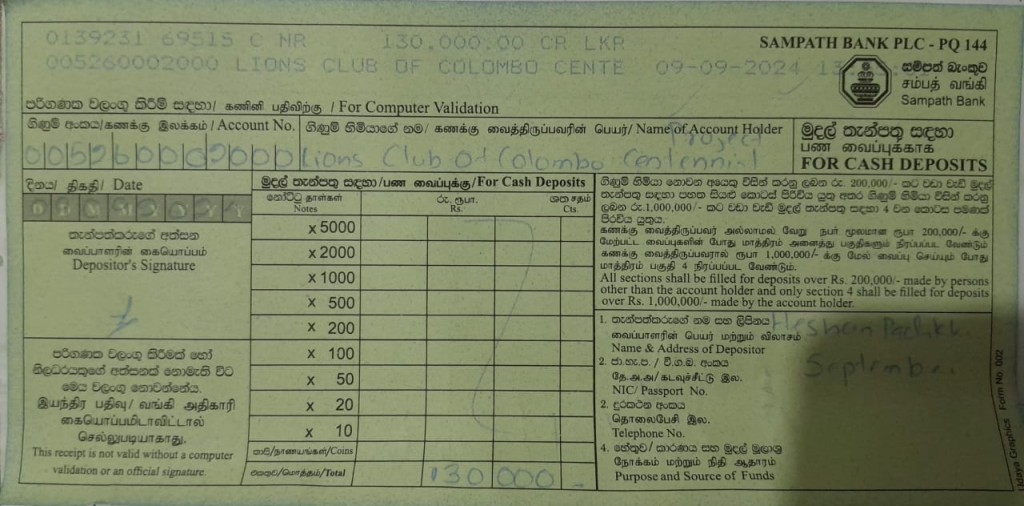 0139231 69515 C NR 130,000.00 CR LKR
005260002000 LIONS CLUB OF COLOMBO CENTE 09-09-2024
SAMPATH BANK PLC - PQ 144
සම්පත් බැංකුව
சம்பத் வங்கி
Sampath Bank
පරිගණක වලංගු කිරීම් සඳහා / கணினி பதிவிற்கு / For Computer Validation
ගිණුම් අංකය/கணக்கு இலக்கம் / Account No.
ගිණුම් හිමියාගේ නම / கணக்கு வைத்திருப்பவரின் பெயர்/ Name of Account Holder
Project
005260002000
Lions Club Of Colombo Centennial
මුදල් තැන්පතු සඳහා
பண வைப்புக்காக
FOR CASH DEPOSITS
දිනය/ திகதி / Date
තැන්පත්කරුගේ අත්සන
வைப்பாளரின் கையொப்பம்
Depositor's Signature
පරිගණක වලංගු කිරීමක් හෝ
නිලධරයකුගේ අත්සනක් නොමැති විට
මෙය වලංගු නොවන්නේය.
இயந்திர பதிவு/ வங்கி அதிகாரி
கையொப்பமிடாவிட்டால்
செல்லுபடியாகாது.
This receipt is not valid without a computer
validation or an official signature.
මුදල් තැන්පතු සඳහා/பண வைப்புக்கு/For Cash Deposits
නෝට්ටු தாள்கள்
Notes
රු. ரூபா.
Rs.
ශත சதம்
Cts.
x 5000
x 2000
x 1000
x 500
x 200
x 100
x 50
x 20
x 10
කාසි/நாணயங்கள்/Coins
එකතුව/மொத்தம்/Total
130 000 -
ගිණුම් හිමියා නොවන අයෙකු විසින් කරනු ලබන රු. 200,000/- කට වඩා වැඩි මුදල්
තැන්පතු සඳහා පහත සියළු කොටස් පිරවිය යුතු අතර ගිණුම් හිමියා විසින් කරනු
ලබන රු.1,000,000/- කට වඩා වැඩි මුදල් තැන්පතු සඳහා 4 වන කොටස පමණක්
පිරවිය යුතුය.
கணக்கு வைத்திருப்பவர் அல்லாமல் வேறு நபர் மூலமான ரூபா 200,000/- க்கு
மேற்பட்ட வைப்புகளின் போது மாத்திரம் அனைத்து பகுதிகளும் நிரப்பப்பட வேண்டும்
கணக்கு வைத்திருப்பவரால் ரூபா 1,000,000/- க்கு மேல் வைப்பு செய்யும் போது
மாத்திரம் பகுதி 4 நிரப்பப்பட வேண்டும்.
All sections shall be filled for deposits over Rs. 200,000/- made by persons
other than the account holder and only section 4 shall be filled for deposits
over Rs. 1,000,000/- made by the account holder.
1. තැන්පත්කරුගේ නම සහ ලිපිනය
வைப்பாளரின் பெயர் மற்றும் விலாசம்
Name & Address of Depositor
Heshan
September
2. ජා.හැ.ප. / වි.ග.බ. අංකය
தே.அ.அ/ கடவுச்சீட்டு இல.
NIC/ Passport No.
2. දුරකථන අංකය
தொலைபேசி இல.
Telephone No.
4. හේතුව / කාරණය සහ මුදල් මූලාශ්‍ර
நோக்கம் மற்றும் நிதி ஆதாரம்
Purpose and Source of Funds
Udaya Graphics Form No. 002